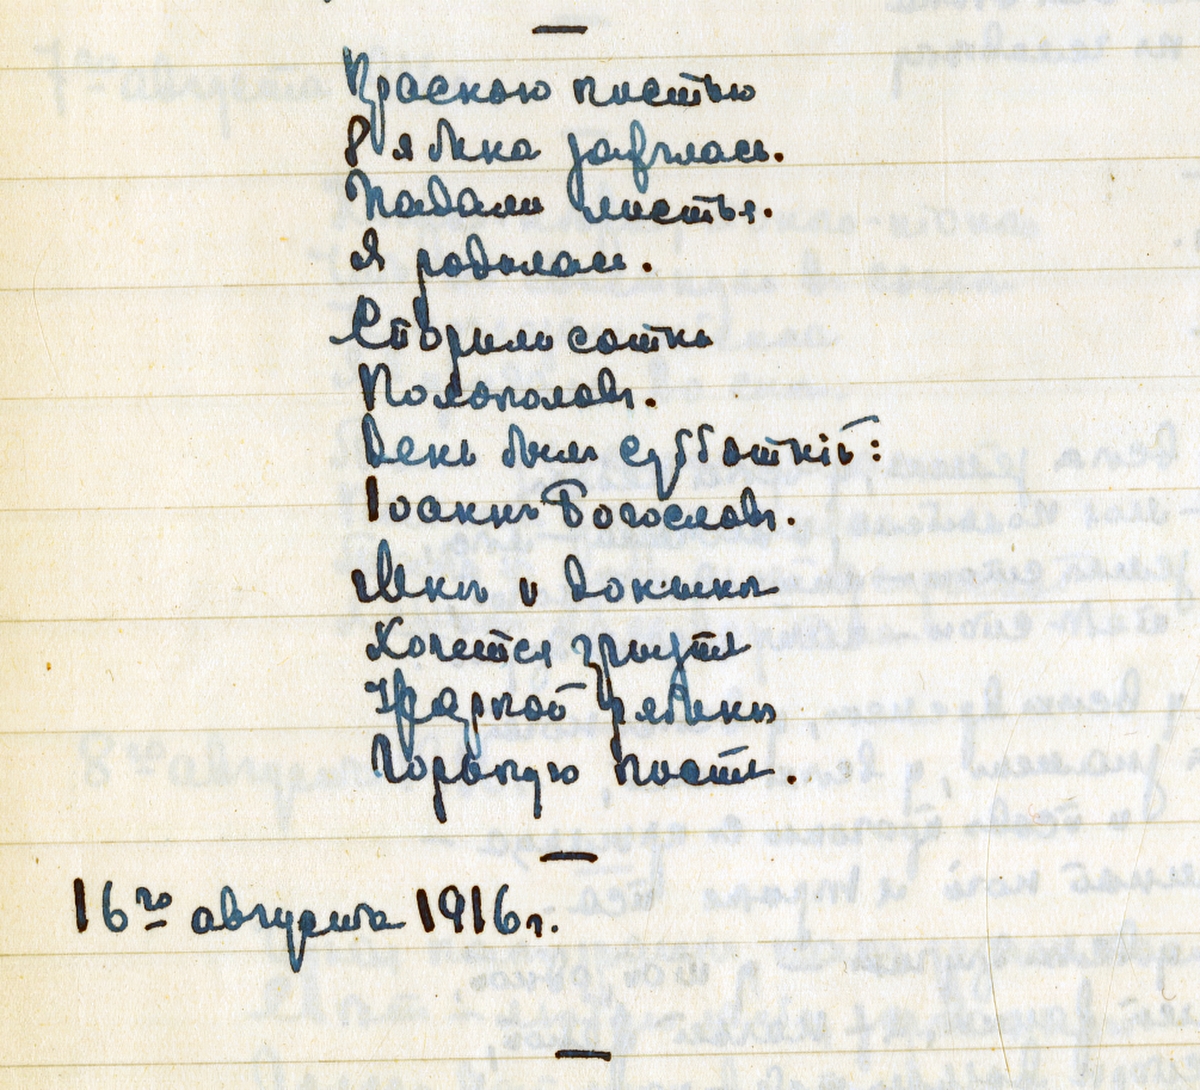 Красною кистью
Рябина зажглась.
Падали листья.
Я родилась.
Спорили сотни
Колоколовъ.
День былъ субботній:
Іоаннъ Богословъ.
Мнѣ и донынѣ
Хочется грызть
Жаркой рябины
Горькую кисть.
16го августа 1916г.